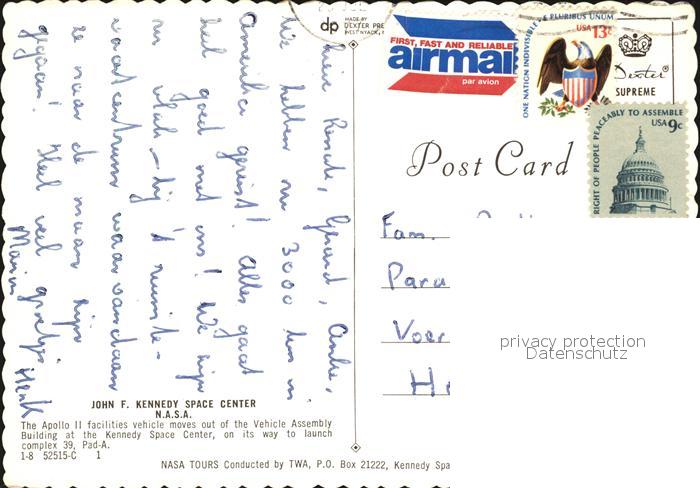 dp MADE BY
DEXTER PRE
WEST NYACK,
FIRST, FAST AND RELIABLE
airmail
par avion
ONE NATION INDIVISIBLE
E PLURIBUS UNUM
USA 13c
Dexter
SUPREME
RIGHT OF PEOPLE PEACEABLY TO ASSEMBLE
USA 9c
Post Card
Fam.
Para
Voer
privacy protection
Datenschutz
Gerard,
We hebben nu 3000 km in
Amerika gereisd! Alles gaat
heel goed met ons! We zijn
nu vlak-bij 't ruimte-
vaartcentrum waarvandaan
ze naar de maan zijn
gegaan! Heel veel groetjes
Henk
JOHN F. KENNEDY SPACE CENTER
N.A.S.A.
The Apollo II facilities vehicle moves out of the Vehicle Assembly
Building at the Kennedy Space Center, on its way to launch
complex 39, Pad-A.
1-8 52515-C 1
NASA TOURS Conducted by TWA, P.O. Box 21222, Kennedy Spa